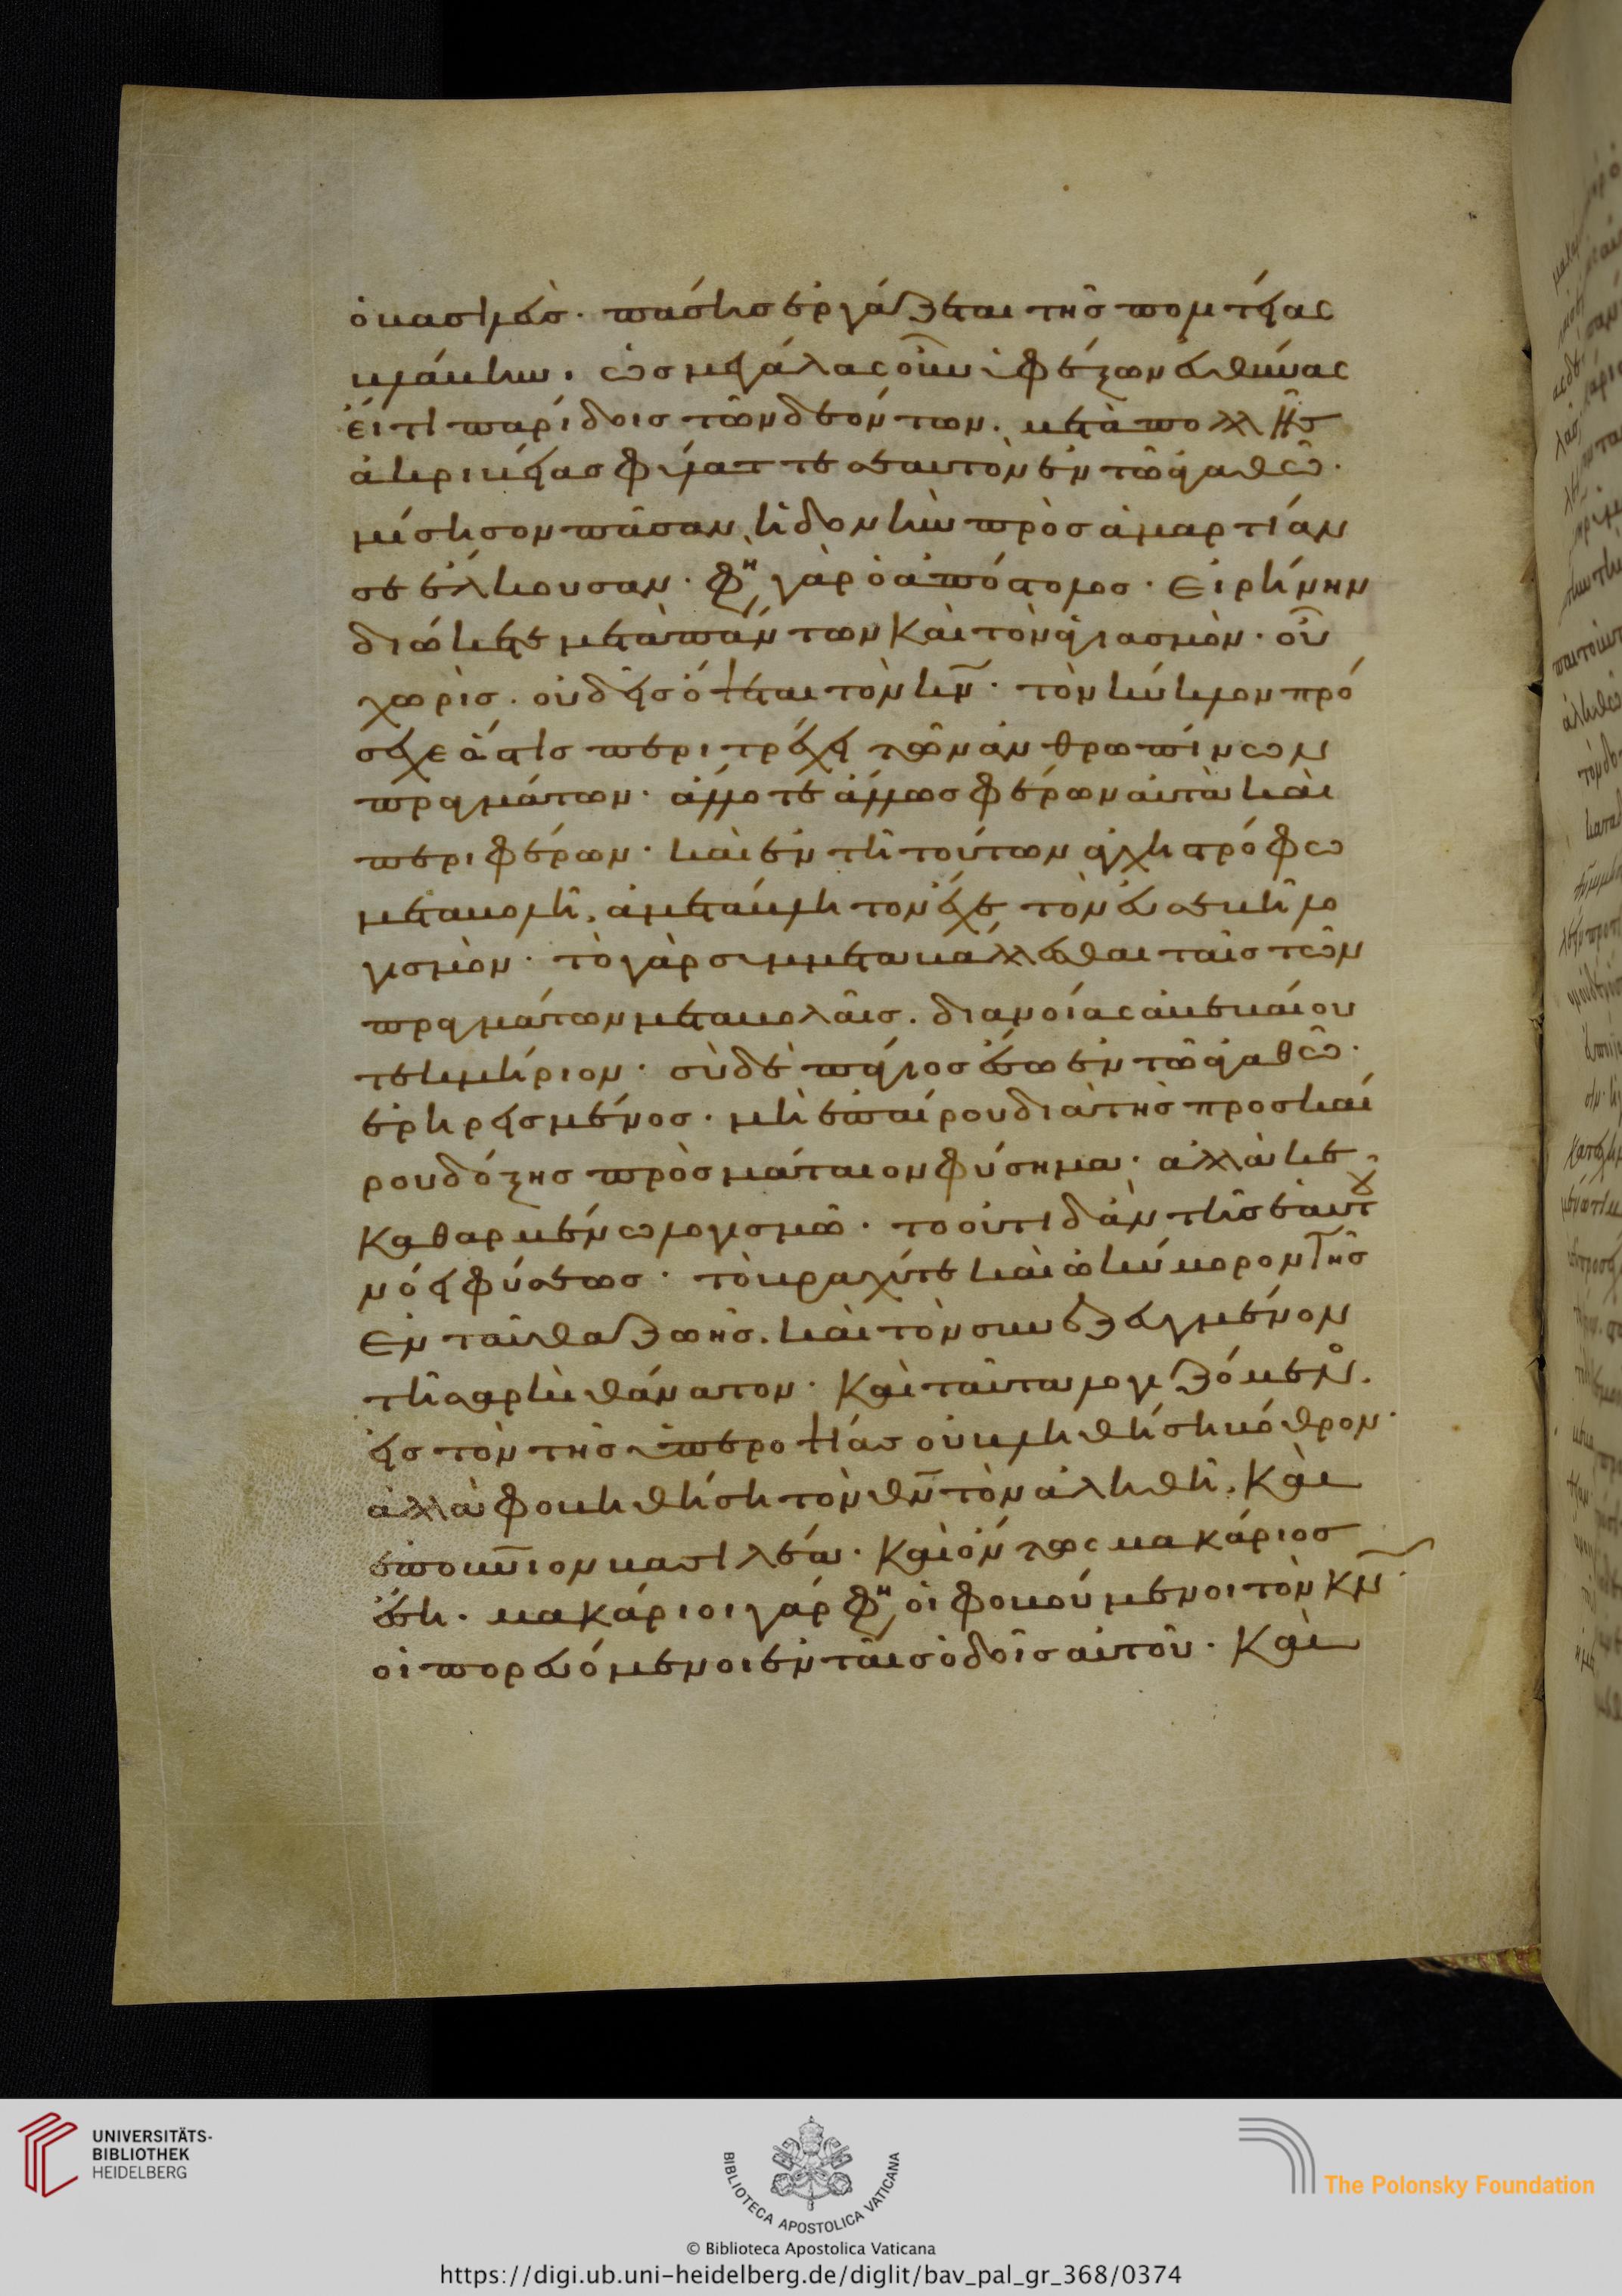 ὁ βασιλεὺς. πάσης ἐργάζεται τῆς πολιτείας
βλάβην. ὡς μεγάλας οὖν ὑφέξων εὐθύνας
εἴ τι παρίδοις τῶν δεόντων. μετὰ πολλῆς
ἀκριβείας φύλαττε σεαυτὸν ἐν τῷ ἀγαθῷ.
μίσησον πᾶσαν ἡδονὴν πρὸς ἁμαρτίαν
σε ἕλκουσαν. φη γὰρ ὁ ἀπόστολος. Εἰρήνην
διώκετε μετὰ πάντων καὶ τὸν ἁγιασμὸν. οὗ
χωρὶς. οὐδεὶς ὄψεται τὸν κν. τὸν κύκλον πρό
σχες ὅστις περιτρέχει τῶν ἀνθρωπίνων
πραγμάτων. ἄλλοτε ἄλλως φέρων αὐτὰ καὶ
περιφέρων. καὶ ἐν τῇ τούτων ἀγχιστρόφω
μεταβολῇ. ἀμετάβλητον ἔχε τὸν εὐσεβῆ λο
γισμὸν. τὸ γὰρ συμμεταβάλλεσθαι ταῖς τῶν
πραγμάτων μεταβολαῖς. διανοίας ἀβεβαίου
τεκμήριον. σὺ δὲ πάγιος ἔσω ἐν τῷ ἀγαθῷ.
ἐρηρεισμένος. μὴ ἐπαίρου διὰ τῆς προσκαί
ρου δόξης πρὸς μάταιον φύσημα. ἀλλὰ κε
καθαρμένω λογισμῷ. τὸ οὐτιδανὸν τῆς ἑαυτοῦ
νόει φύσεως. τὸ βραχύ τε καὶ ὠκύμορον τῆς
ἐνταῦθα ζωῆς. καὶ τὸν συνεζευγμένον
τῇ σαρκὶ θάνατον. Καὶ ταῦτα λογιζόμενος.
εἰς τὸν τῆς ὑπεροψίας οὐ βληθήσῃ βόθρον.
ἀλλὰ φοβηθήσῃ τὸν θν τὸν ἀληθῆ. Καὶ
ἐπουνιον βασιλέα. Καὶ ὄντως μακάριος
ἔσῃ. μακάριοι γάρ φη οἱ φοβούμενοι τὸν κν.
οἱ πορευόμενοι ἐν ταῖς ὁδοῖς αὐτοῦ. Καὶ
UNIVERSITÄTS-
BIBLIOTHEK
HEIDELBERG
BIBLIOTECA APOSTOLICA VATICANA
The Polonsky Foundation
© Biblioteca Apostolica Vaticana
https://digi.ub.uni-heidelberg.de/diglit/bav_pal_gr_368/0374